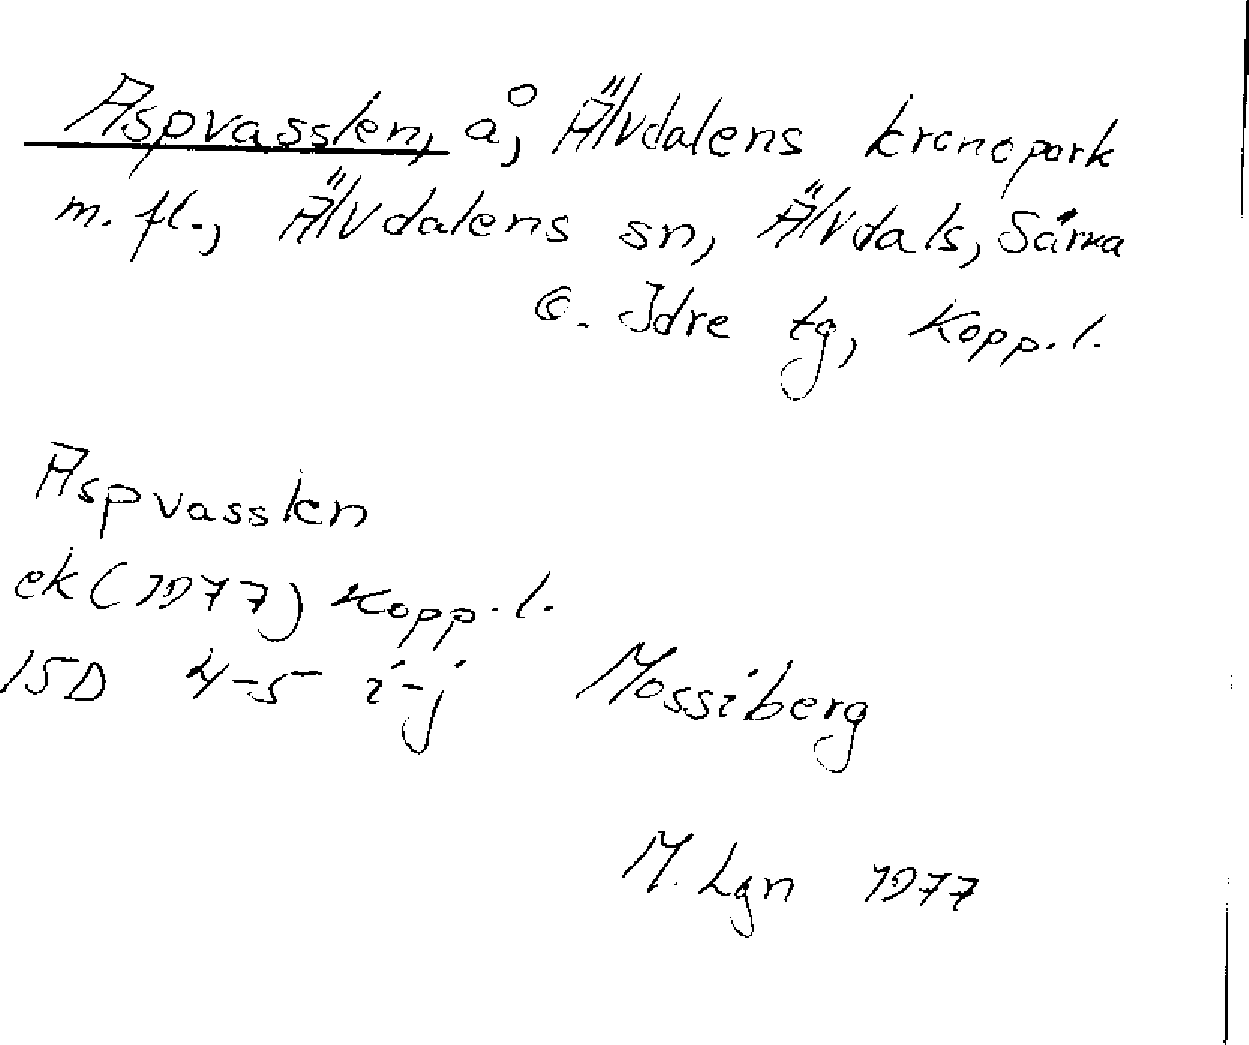 Aspvasslen, å, Älvdalens kronopark
m. fl., Älvdalens sn, Älvdals, Särna
o. Idre tg, Kopp. l.
Aspvasslen
ek (1977) Kopp. l.
15D 4-5 i-j Mossiberg
M. Lgn 1977